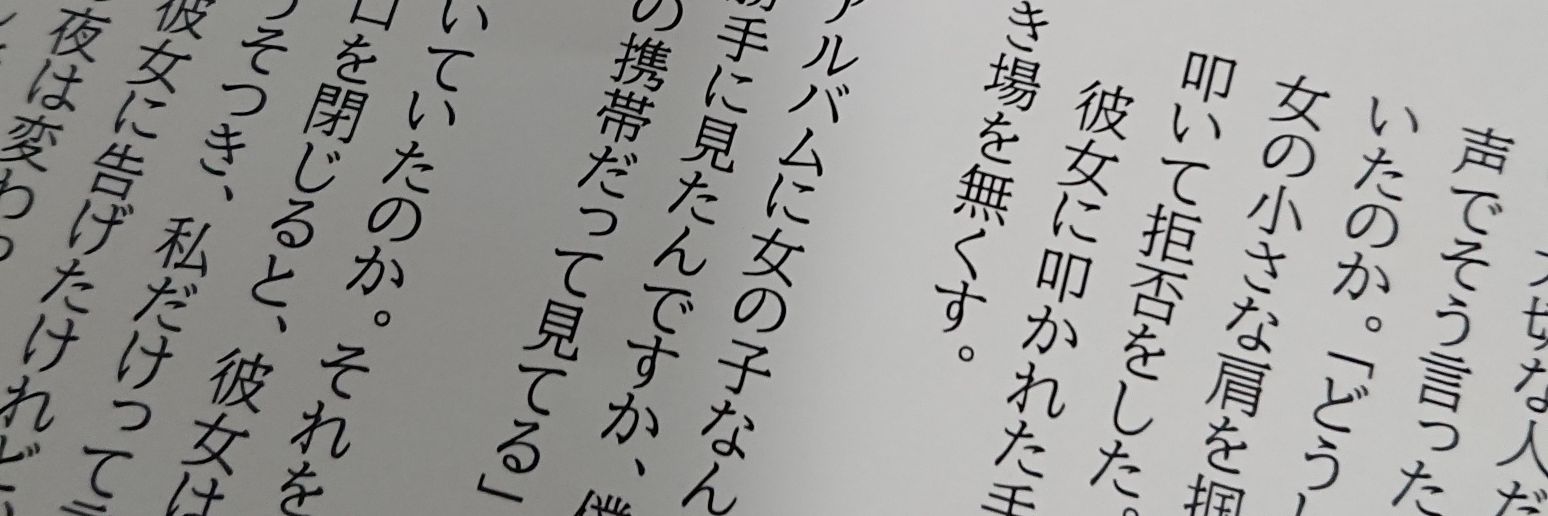 切な人だ
声でそう言った
いたのか。「どうし
女の小さな肩を掴
叩いて拒否をした。
彼女に叩かれた手
き場を無くす。
アルバムに女の子なん
勝手に見たんですか、僕
の携帯だって見てる」
いていたのか。それを
口を閉じると、彼女は
うそつき、私だけって言
彼女に告げたけれど
夜は変わっ